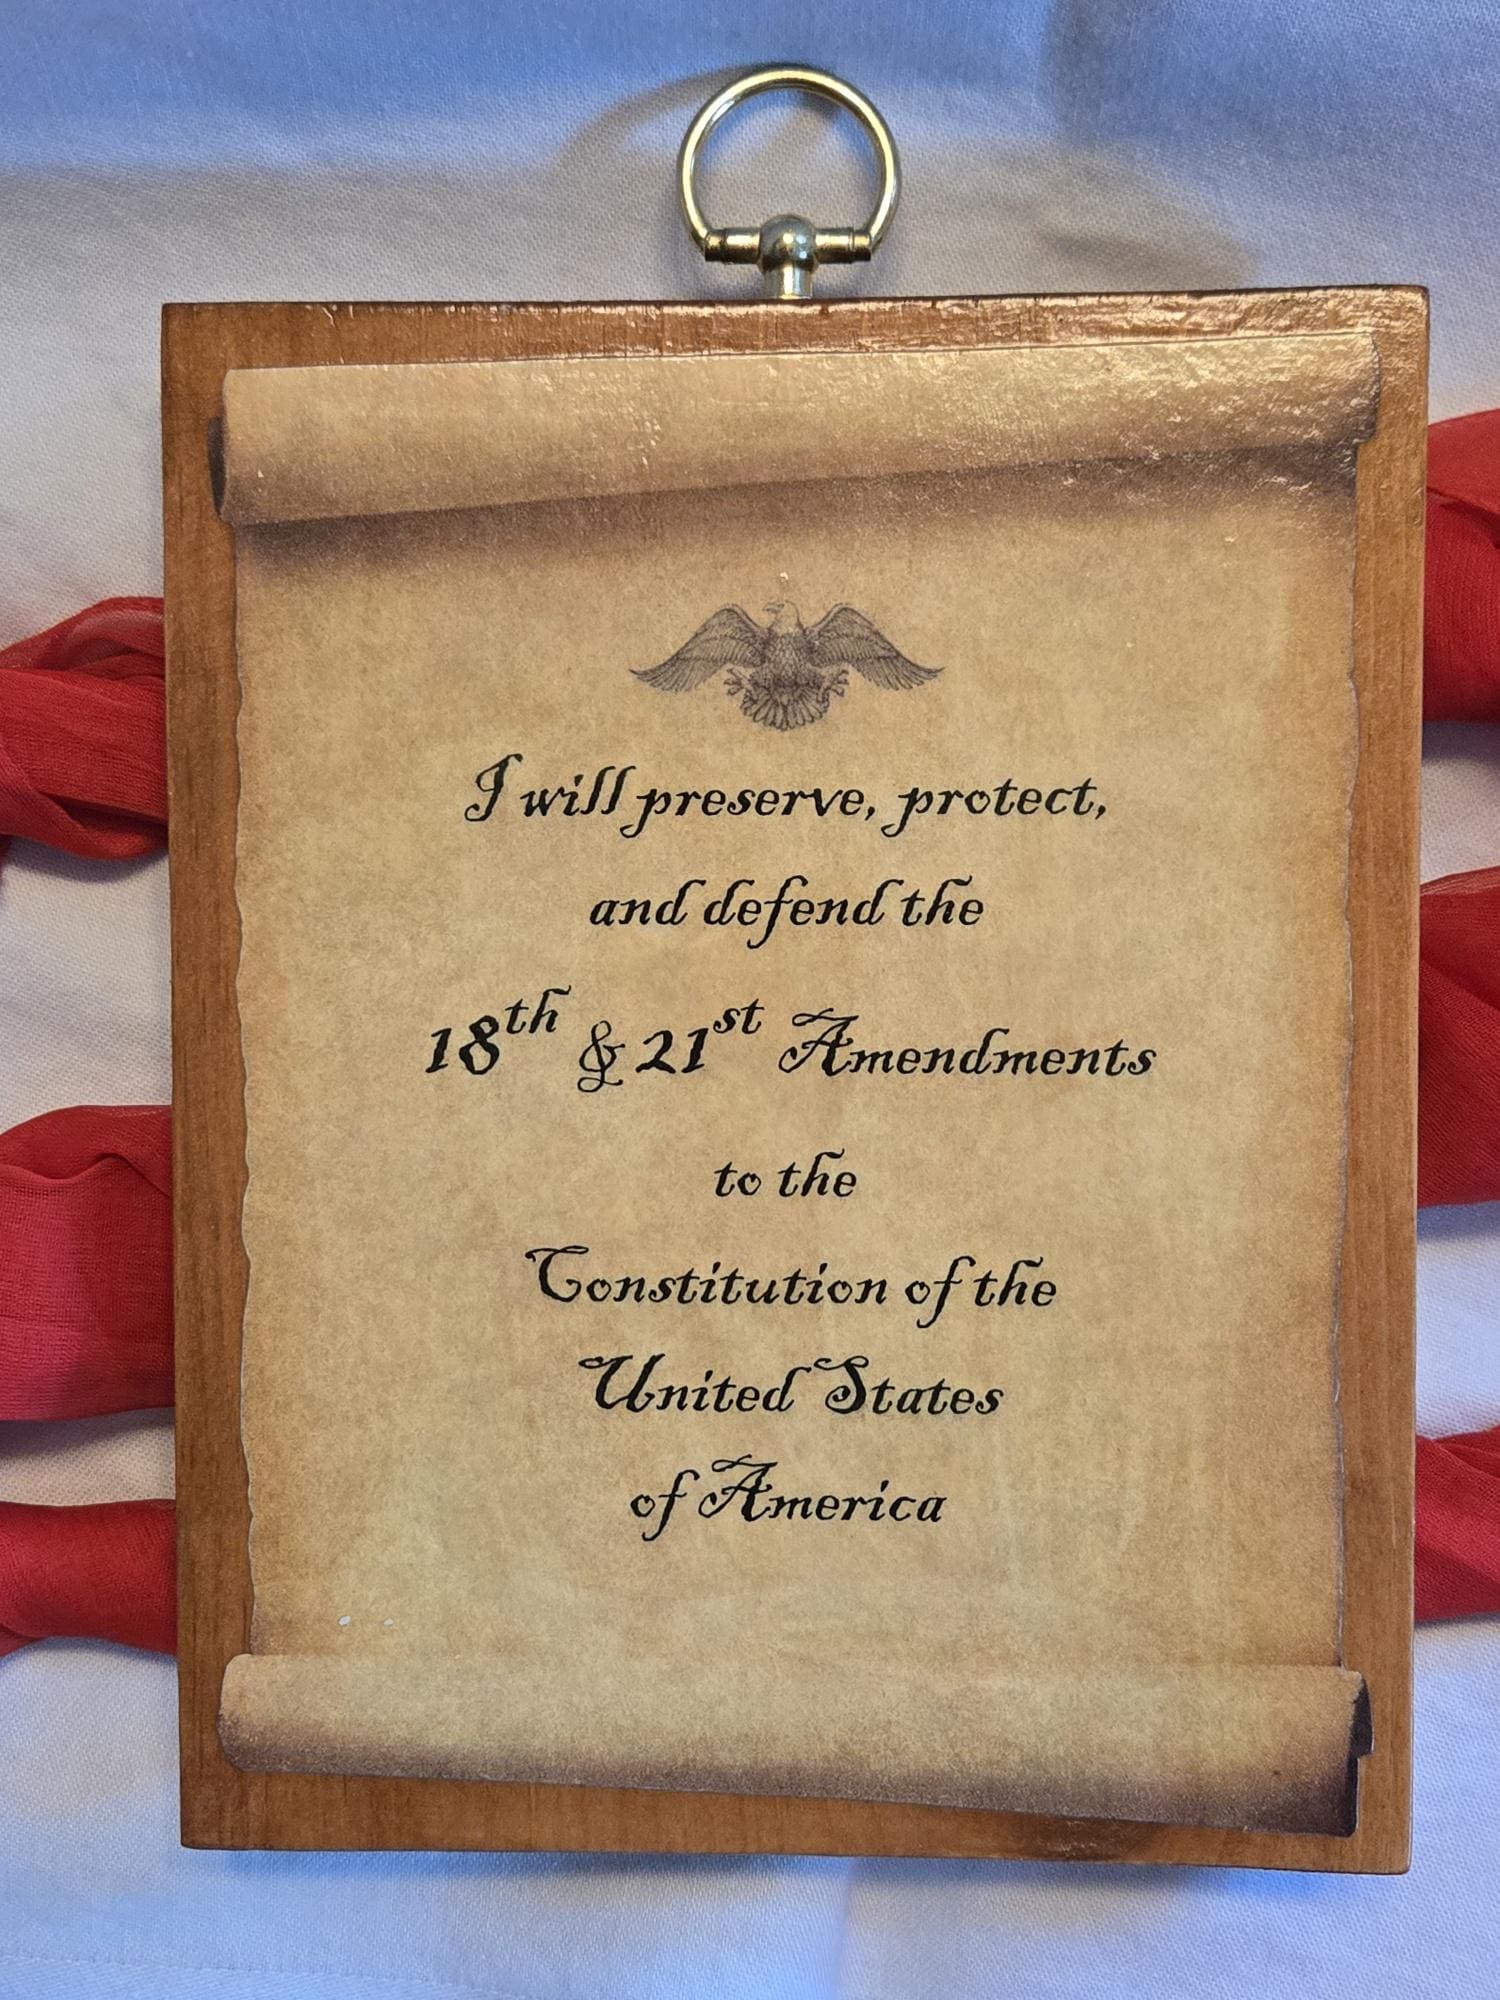 I will preserve, protect,
and defend the
18th & 21st Amendments
to the
Constitution of the
United States
of America